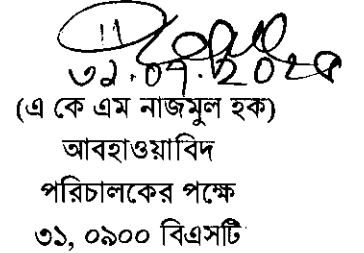 ৩১.০৭.২০২৪
(এ কে এম নাজমুল হক)
আবহাওয়াবিদ
পরিচালকের পক্ষে
৩১, ০৯০০ বিএসটি